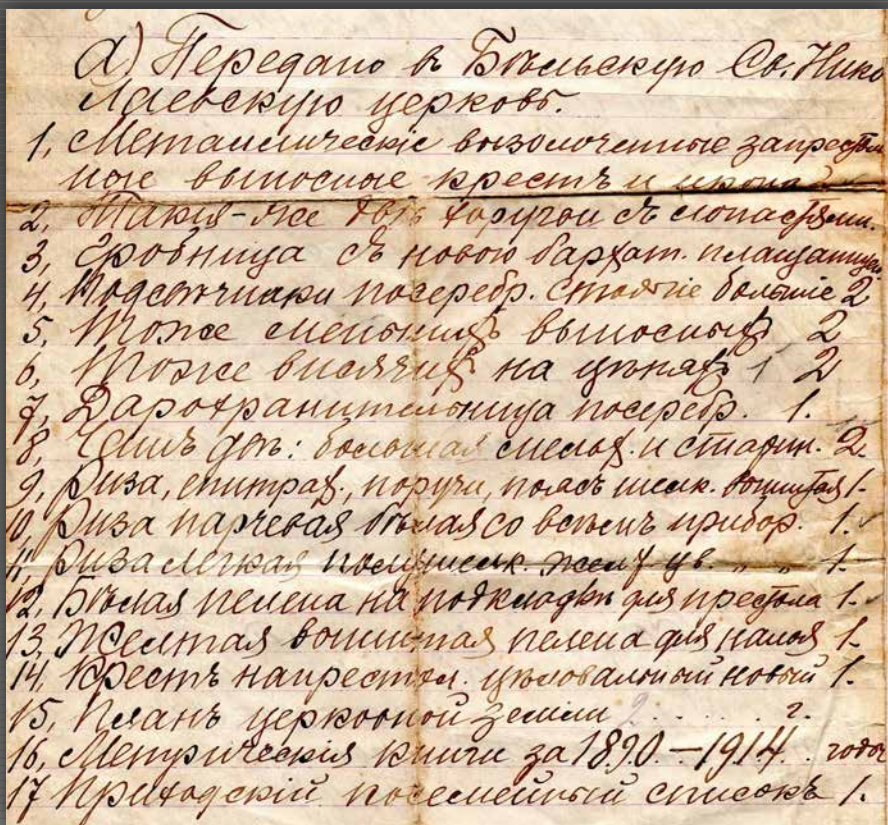 а) Передано в Бѣльскую Св. Нико
лаевскую церковь.
1, Металлическіе вызолоченные запрестоль
ные выносные крестъ и икона
2, Такія-же двѣ хоругви съ лопастями.
3, Гробница съ новою бархат. плащаницею
4, Подсвѣчники посеребр. стоячіе большіе 2
5, Тоже меньшихъ выносныхъ 2
6, Тоже висячихъ на цѣпяхъ 2
7, Дарохранительница посеребр. 1.
8, Чашъ двѣ: большая и старин. 2.
9, Риза, епитрах., поручи, поясъ шелк. вышитая 1.
10, Риза парчевая бѣлая со всѣмъ прибор. 1.
11, Риза легкая полушелк. цв. „ „ 1.
12, Бѣлая пелена на подкладкѣ для престола 1.
13, Желтая вышитая пелена для налоя 1.
14, Крестъ напрестол. цѣловальный новый 1.
15, Планъ церковной земли . . . . . 2.
16, Метрическія книги за 1890.–1914. годы
17 Приходскій посемейный списокъ 1.